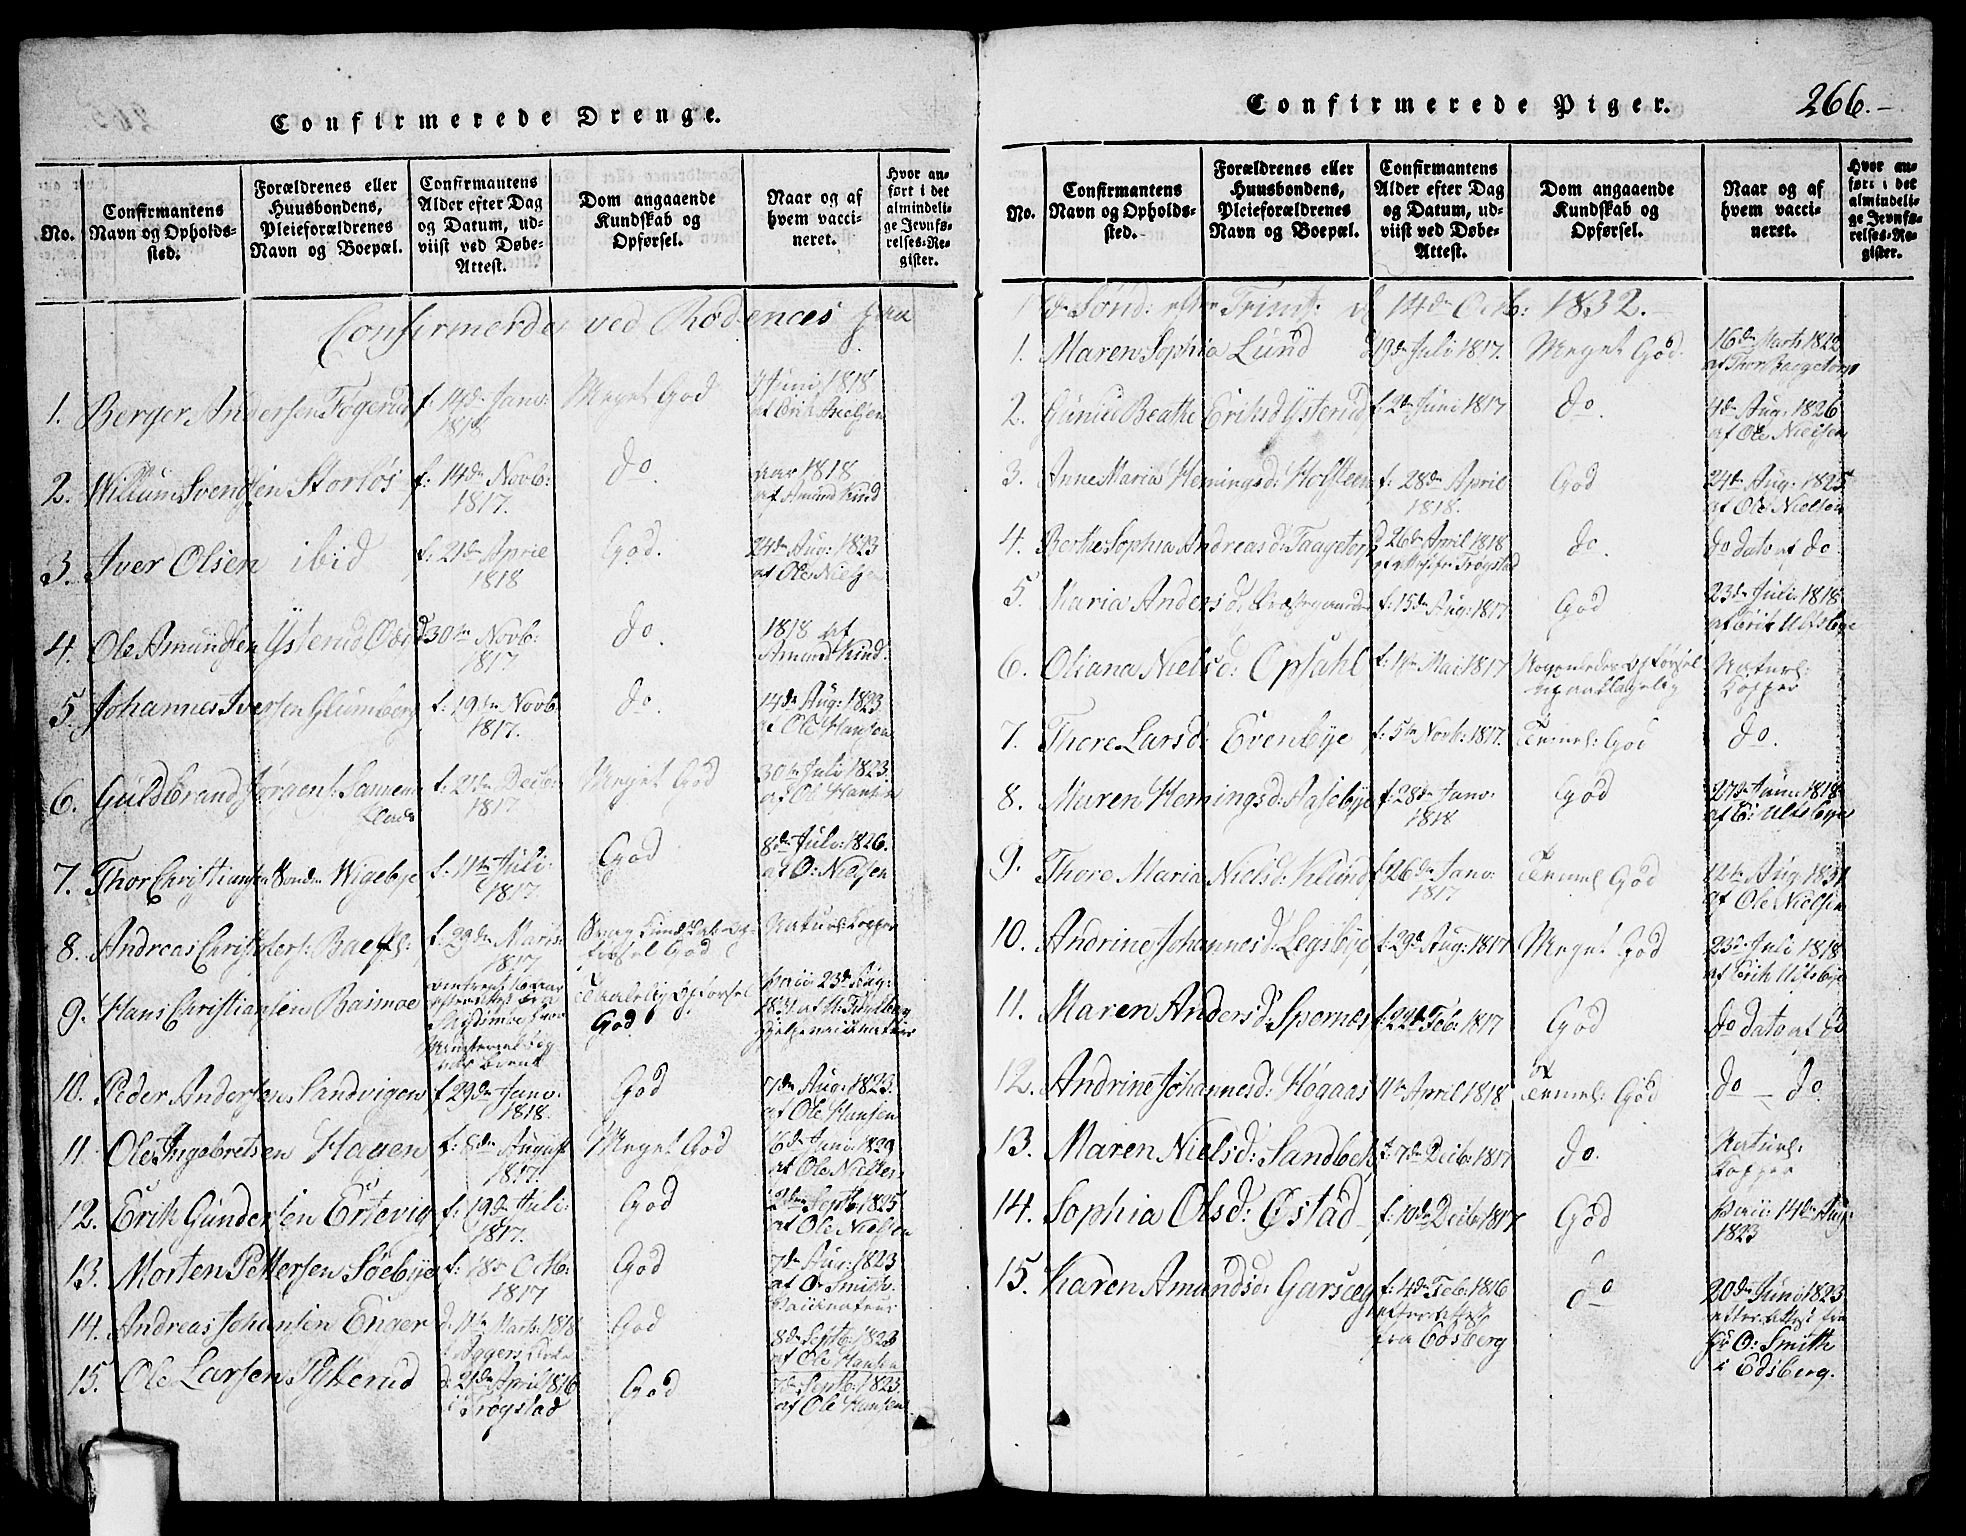 Confirmerede Drenge.
No.
Confirmantens Navn og Opholdssted.
Forældrenes eller Huusbondens, Pleieforældrenes Navn og Boepæl.
Confirmantens Alder efter Dag og Datum, udviist ved Døbe-Attest.
Dom angaaende Kundskab og Opførsel.
Naar og af hvem vaccineret.
Hvor anført i det almindelige Jevnførelses-Register.
Confirmerde ved Rødences paa
1. Berger Andersen Togerud f. 14de Janv: 1818 Meget God Juni 1818 af Erik Nielsen
2. Willum Svendsen Storløs f: 14de Novb: 1817. do. aar 1818 af Amund Kind
3. Iver Olsen ibid f: 21de April 1818 God. 24de Aug: 1823 af Ole Nielsen
4. Ole Amundsen Ysterud 30te Novb: 1817 do. 1818 af Amund Kind.
5. Johannes Iversen Glumberg f: 19de Novb: 1817. do. 14de Aug: 1823. af Ole Hansen
6. Guldbrand Jørgens: f: 21de Decbr: 1817. Meget God 30te Juli 1823. af Ole Hansen
7. Thor Christiansen Wigebye f: 11te Juli 1817. God 8de Julv: 1826. af O: Nielsen
8. Andreas f: 29de Marts: 1817 Opførsel God Naturl: Kopper
9. Hans Christiansen Basmoe Taalelig Opførsel God. 23de Aug: 1831 af
10. Peder Andersen Sandvigen f 29de Janv: 1818. God 7de Aug: 1823. af Ole Hansen
11 Ole Ingebretsen Hagen f: 8de August 1817. Meget God 6de Juni 1829 af Ole Nielsen
12. Erik Gundersen Ertevig f: 19de Juli: 1817. God 2den Septb: 1825 af Ole Nielsen
13. Morten Pettersen Søebye f: 18de Octb: 1817 God 7de Aug: 1823 af O: Smith.
14. Andreas Johansen Enger d: 11te Marts 1818 i Aggers God 8de Septb: 1823 af Ole Hansen
15. Ole Larsen Pytterud d: 21de April 1816 i Trøgstad God 7de Septb: 1823. af Ole Hansen
Confirmerede Piger.
266.
No.
Confirmantens Navn og Opholdssted.
Forældrenes eller Huusbondens, Pleieforældrenes Navn og Boepæl.
Confirmantens Alder efter Dag og Datum, udviist ved Døbe-Attest.
Dom angaaende Kundskab og Opførsel.
Naar og af hvem vaccineret.
Hvor anført i det almindelige Jevnførelses-Register.
Sønd: efter Trinit: d 14de Octb: 1832.
1. Maren Sophia Lund 19de Juli 1817. Meget God. 16de Marts 1822 af Thor
2. Gunild Beathe Eriksd: Ysterud f. 2de Juni 1817 do. 4de Aug: 1826 af Ole Nielsen
3. Anne Maria Hemingsd: Holsteen f: 28de April 1818. God 24de Aug: 1825 af Ole Nielsen
4. Berthe Sophia Andreasd: Taagetorp 26de April 1818 Trøgstad do. do dato af do.
5. Maria Andersd: f: 15de Aug: 1817 God 23de Juli 1818 af Erik Utsbye
6. Oliana Nielsd: Opsahl f: 11te Mai 1817 Opførsel upaaklagelig Naturl: Kopper
7. Thore Larsd: Evenbye f: 5te Novb: 1817. Temel: God do.
8. Maren Hemingsd: Haslebye f: 28de Janv: 1818 God 27de Juni 1818. af E: Utsbye
9. Thore Maria Nielsd: Klund f 26de Janv: 1817 Temel God 12te Aug 1831 af Ole Nielsen
10. Andrine Johannesd: Legsbye f: 29de Aug: 1817 Meget God 23de Juli 1818 af Erik Utsbye
11. Maren Andersd: Spernes f: 22de Feb: 1817 God do dato af do
12. Andrine Johannesd: Høgaas 11te April 1818 Temel: God do — do.
13. Maren Nielsd: Sandbek f: 7de Decb: 1817 do. Naturl: Kopper
14. Sophia Olsd: Østad f: 10de Decb: 1817 God 14de Aug: 1823
15. Karen Amundsd: Garseg f: 4de Feb: 1816 efter Attest fra Edsberg do 20de Juni 1823 efter Attest fra Hr O: Smith i Edsberg.